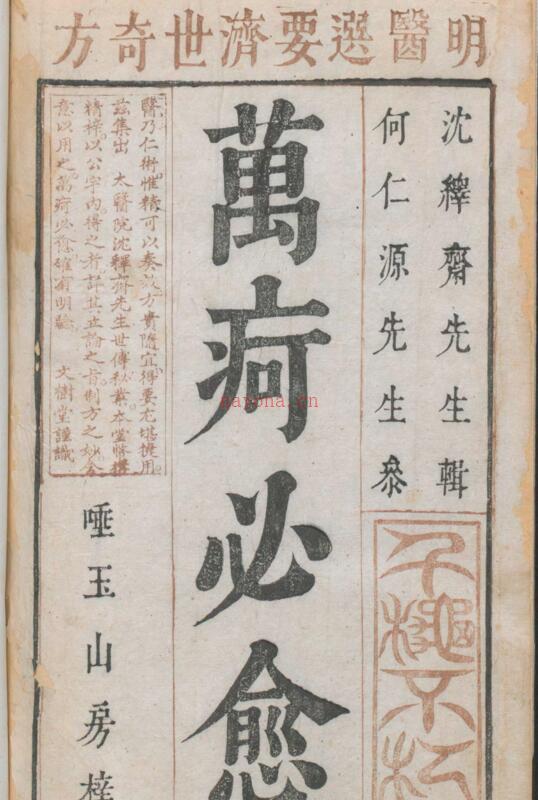 明醫選要濟世奇方
沈繹齋先生輯
何仁源先生叅
萬疴必愈
醫乃仁術惟精可以奏效方貴隨宜得要尤堪擬用
茲集出　太醫院沈繹齋先生世傳秘藏本堂幣購
精梓以公宇內得之者詳其立論之旨制方之妙會
意以用之萬疴必愈確有明驗　文樹堂謹識
唾玉山房梓
千
不朽
nayona.cn